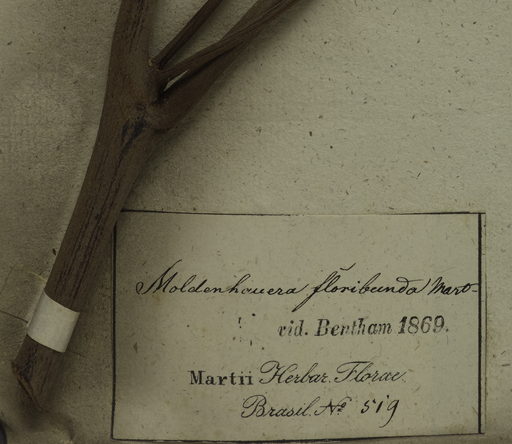 Moldenhauera floribunda Mart.
vid. Bentham 1869.
Martii Herbar. Florae
Brasil. No 519